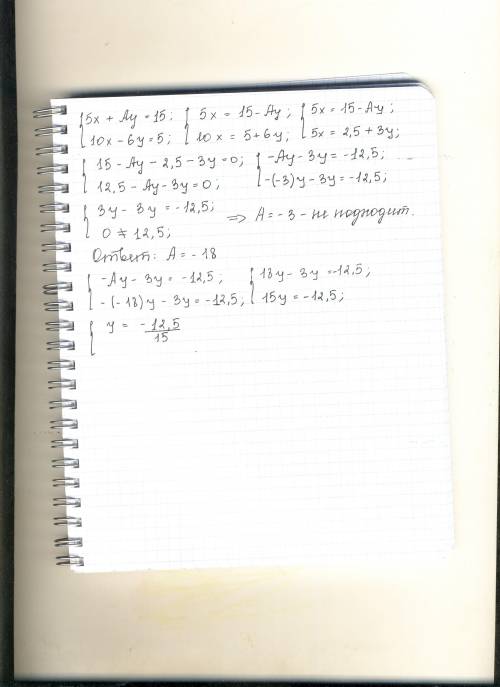 {5x + Ay = 15; { 5x = 15 - Ay; { 5x = 15 - Ay;
{10x - 6y = 5; { 10x = 5 + 6y; { 5x = 2,5 + 3y;
{ 15 - Ay - 2,5 - 3y = 0; { -Ay - 3y = -12,5;
{ 12,5 - Ay - 3y = 0; { -(-3)y - 3y = -12,5;
{ 3y - 3y = -12,5;
{ 0 ≠ 12,5; => A = -3 - не подходит.
Ответ: A = -18
{ -Ay - 3y = -12,5; { 18y - 3y = -12,5;
{ -(-18)y - 3y = -12,5; { 15y = -12,5;
{ y = -12,5/15